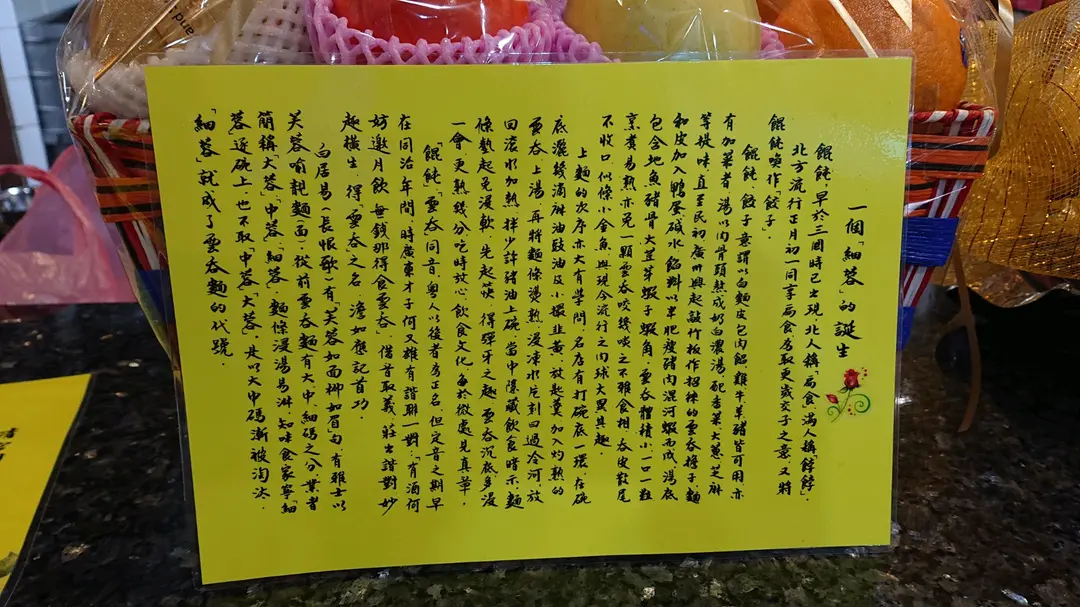 一個「細蓉」的誕生
餛飩，早於三國時已出現，北人稱「扁食」，滿人稱「餑餑」，
北方流行正月初一同享扁食為取更歲交子之意，又將
餛飩喚作「餃子」。
餛飩、餃子意謂以白麵皮包肉餡，雞牛羊豬皆可用，亦
有加菜者，湯以肉骨頭熬成奶白濃湯，配香菜大蔥芝麻
等提味，直至民初廣州興起敲竹板作招徠的雲吞擔子，麵
和皮加入鴨蛋碱水，餡料以半肥瘦豬肉混河蝦而成，湯底
包含地魚豬骨大荳芽蝦子蝦角，雲吞體積小，一口一粒
烹煮易熟，亦免一顆雲吞咬幾啖之不雅食相，吞皮散尾
不收口，似條小金魚，與現今流行之肉球大異其趣。
上麵的次序亦大有學問，名店有打碗底一環，在碗
底灑幾滴麻油豉油及小撮韭黃，放匙羹，加入灼熟的
雲吞，上湯，再將麵條燙熟，浸凍水片刻曰過冷河，放
回滾水加熱，拌少許豬油上碗，當中隱藏飲食暗示，麵
條墊起免浸軟，先起筷，得彈牙之趣，雲吞沉底多浸
一會更熟，幾分吃時放心，飲食文化，每於微處見真章。
「餛飩」「雲吞」同音，粵人以後者為正名，但定音之期早
在同治年間，時廣東才子何又雄有諧聯一對，「有酒何
妨邀月飲，無錢那得食雲吞」，借音取義，莊出諧對，妙
趣橫生，得「雲吞」之名，澹如應記首功。
白居易「長恨歌」有「芙蓉如面柳如眉」句，有雅士以
芙蓉喻靚麵（面），從前雲吞麵有大中細碼之分，業者
簡稱「大蓉」「中蓉」「細蓉」，麵條浸湯易淋，知味食家寧「細
蓉」逐碗上也不取「中蓉」「大蓉」，是以大中碼漸被淘汰，
「細蓉」就成了雲吞麵的代號。